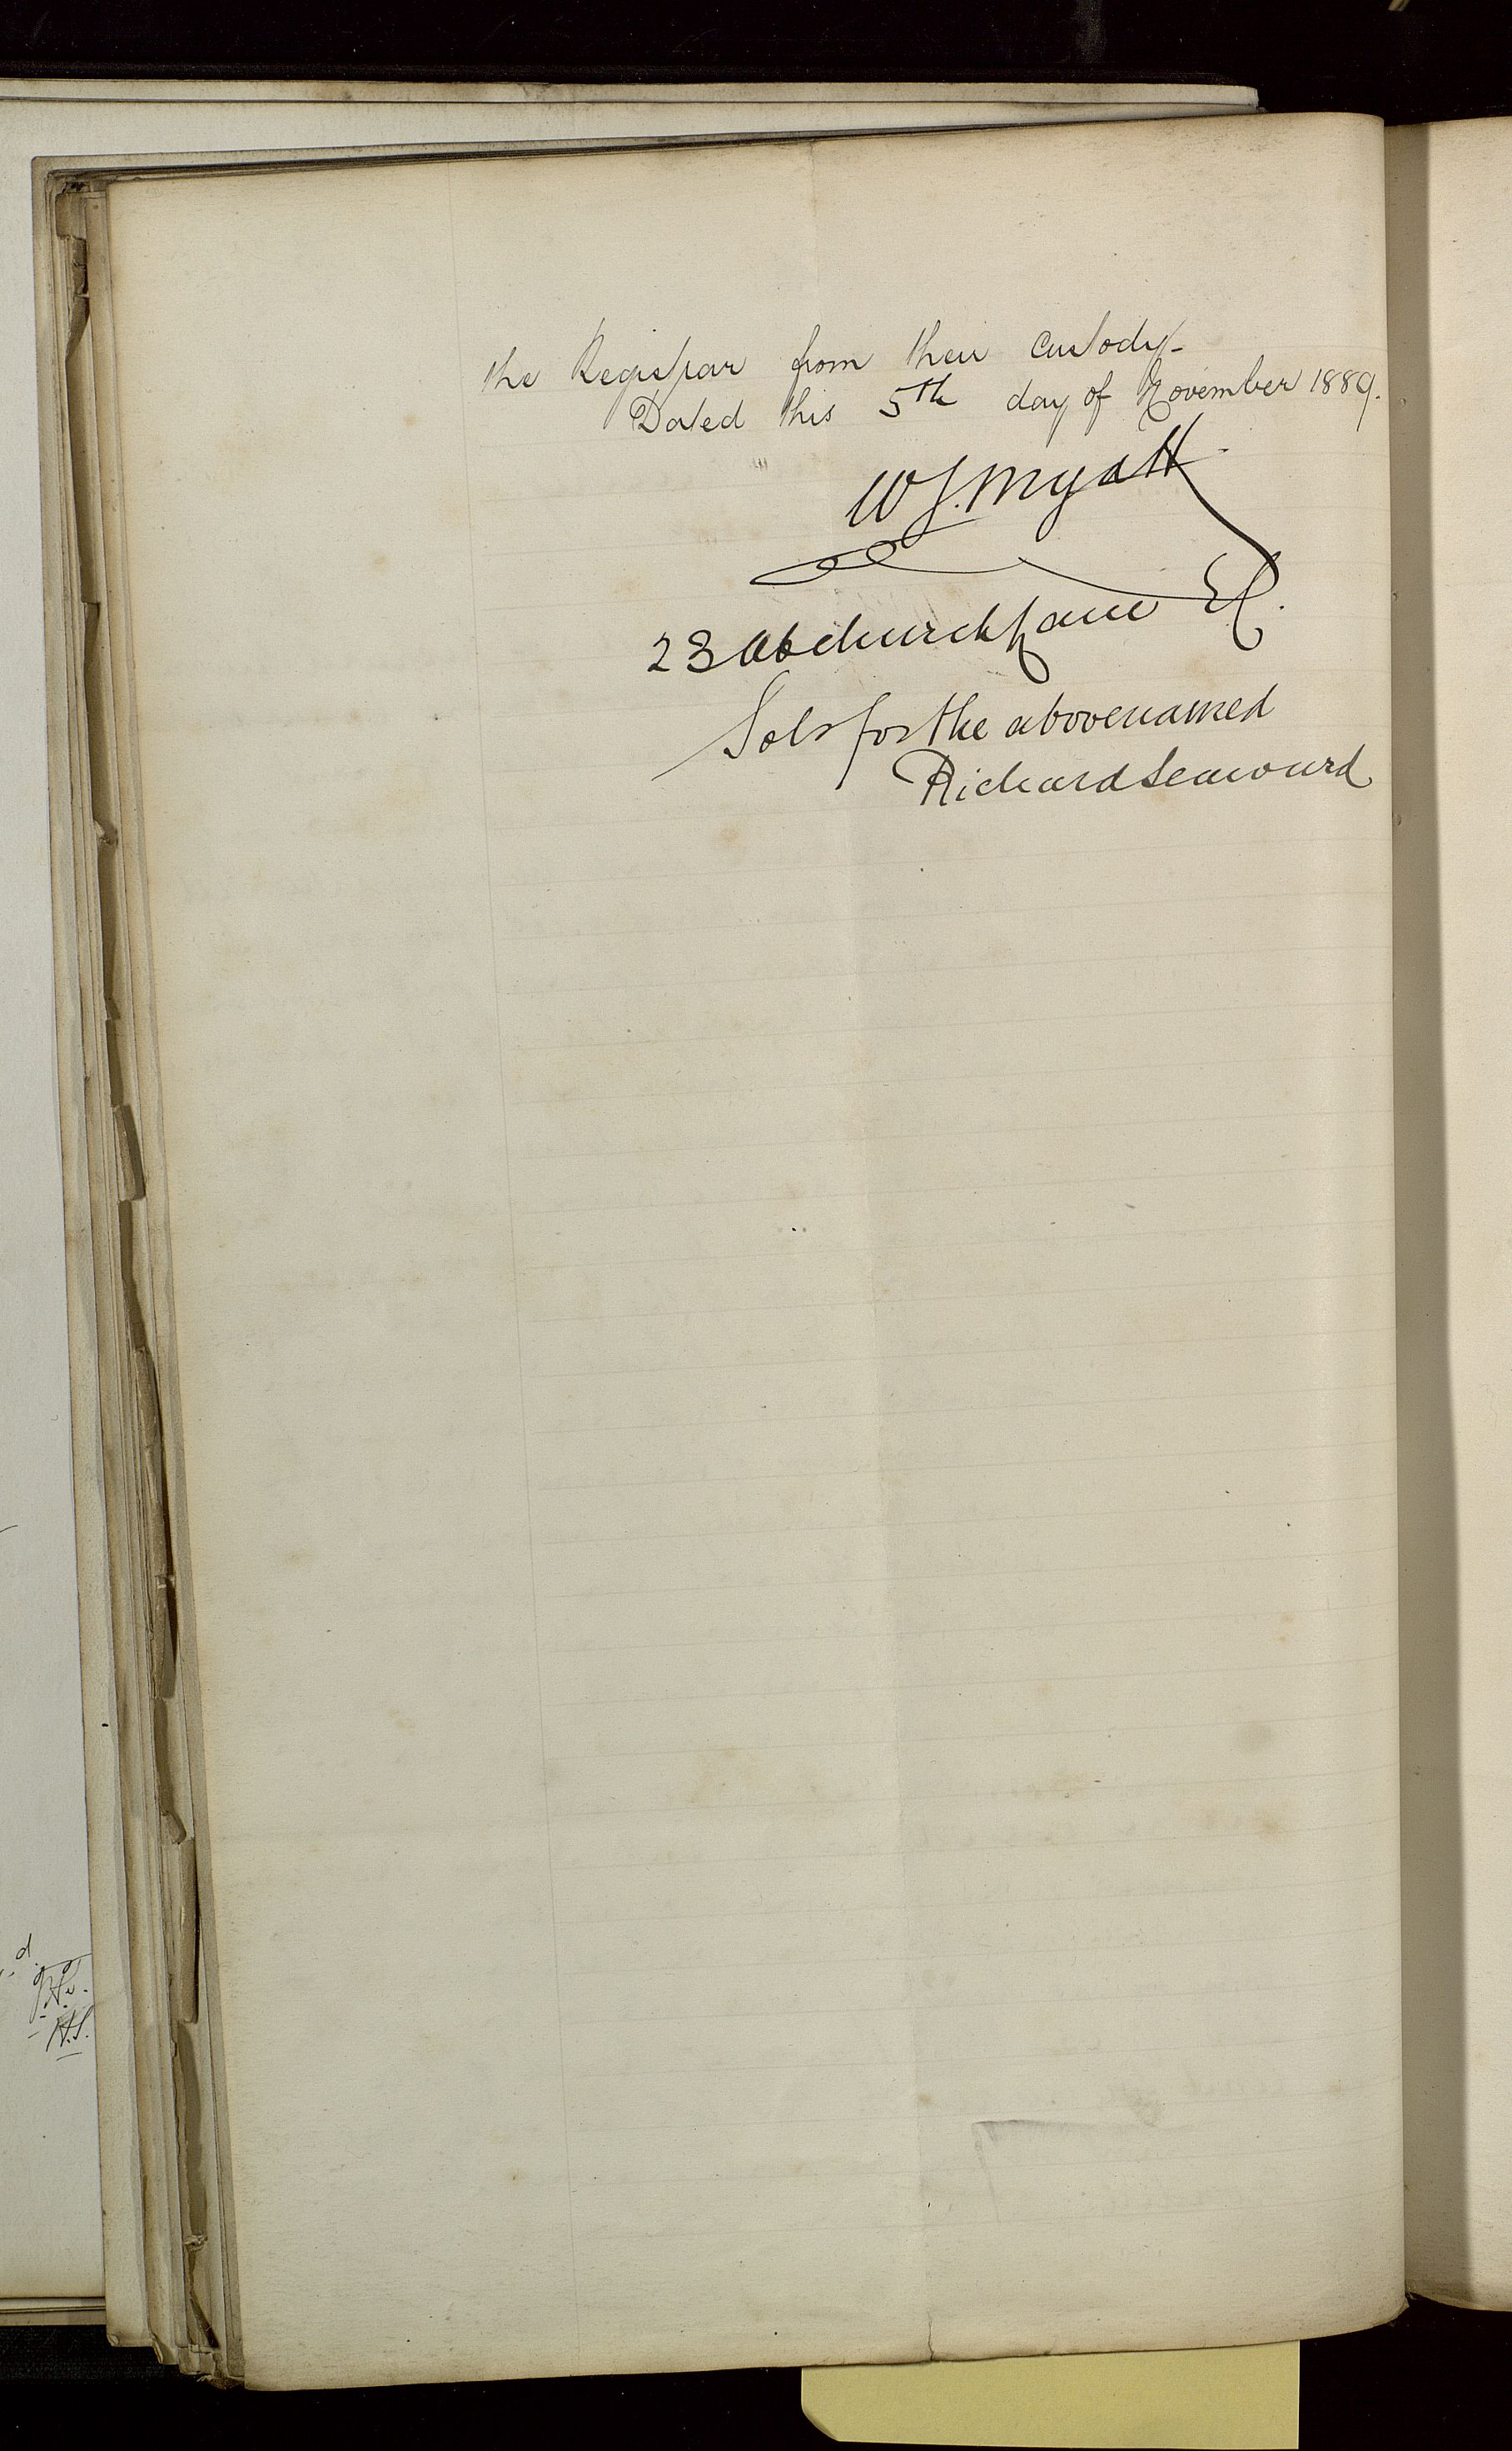 the Registrar from their custody-
Dated this 5th day of November 1889.
W J. Myatt
23 Abchurch Lane EC.
Solr for the abovenamed
Richard Seaward
d
H.S.